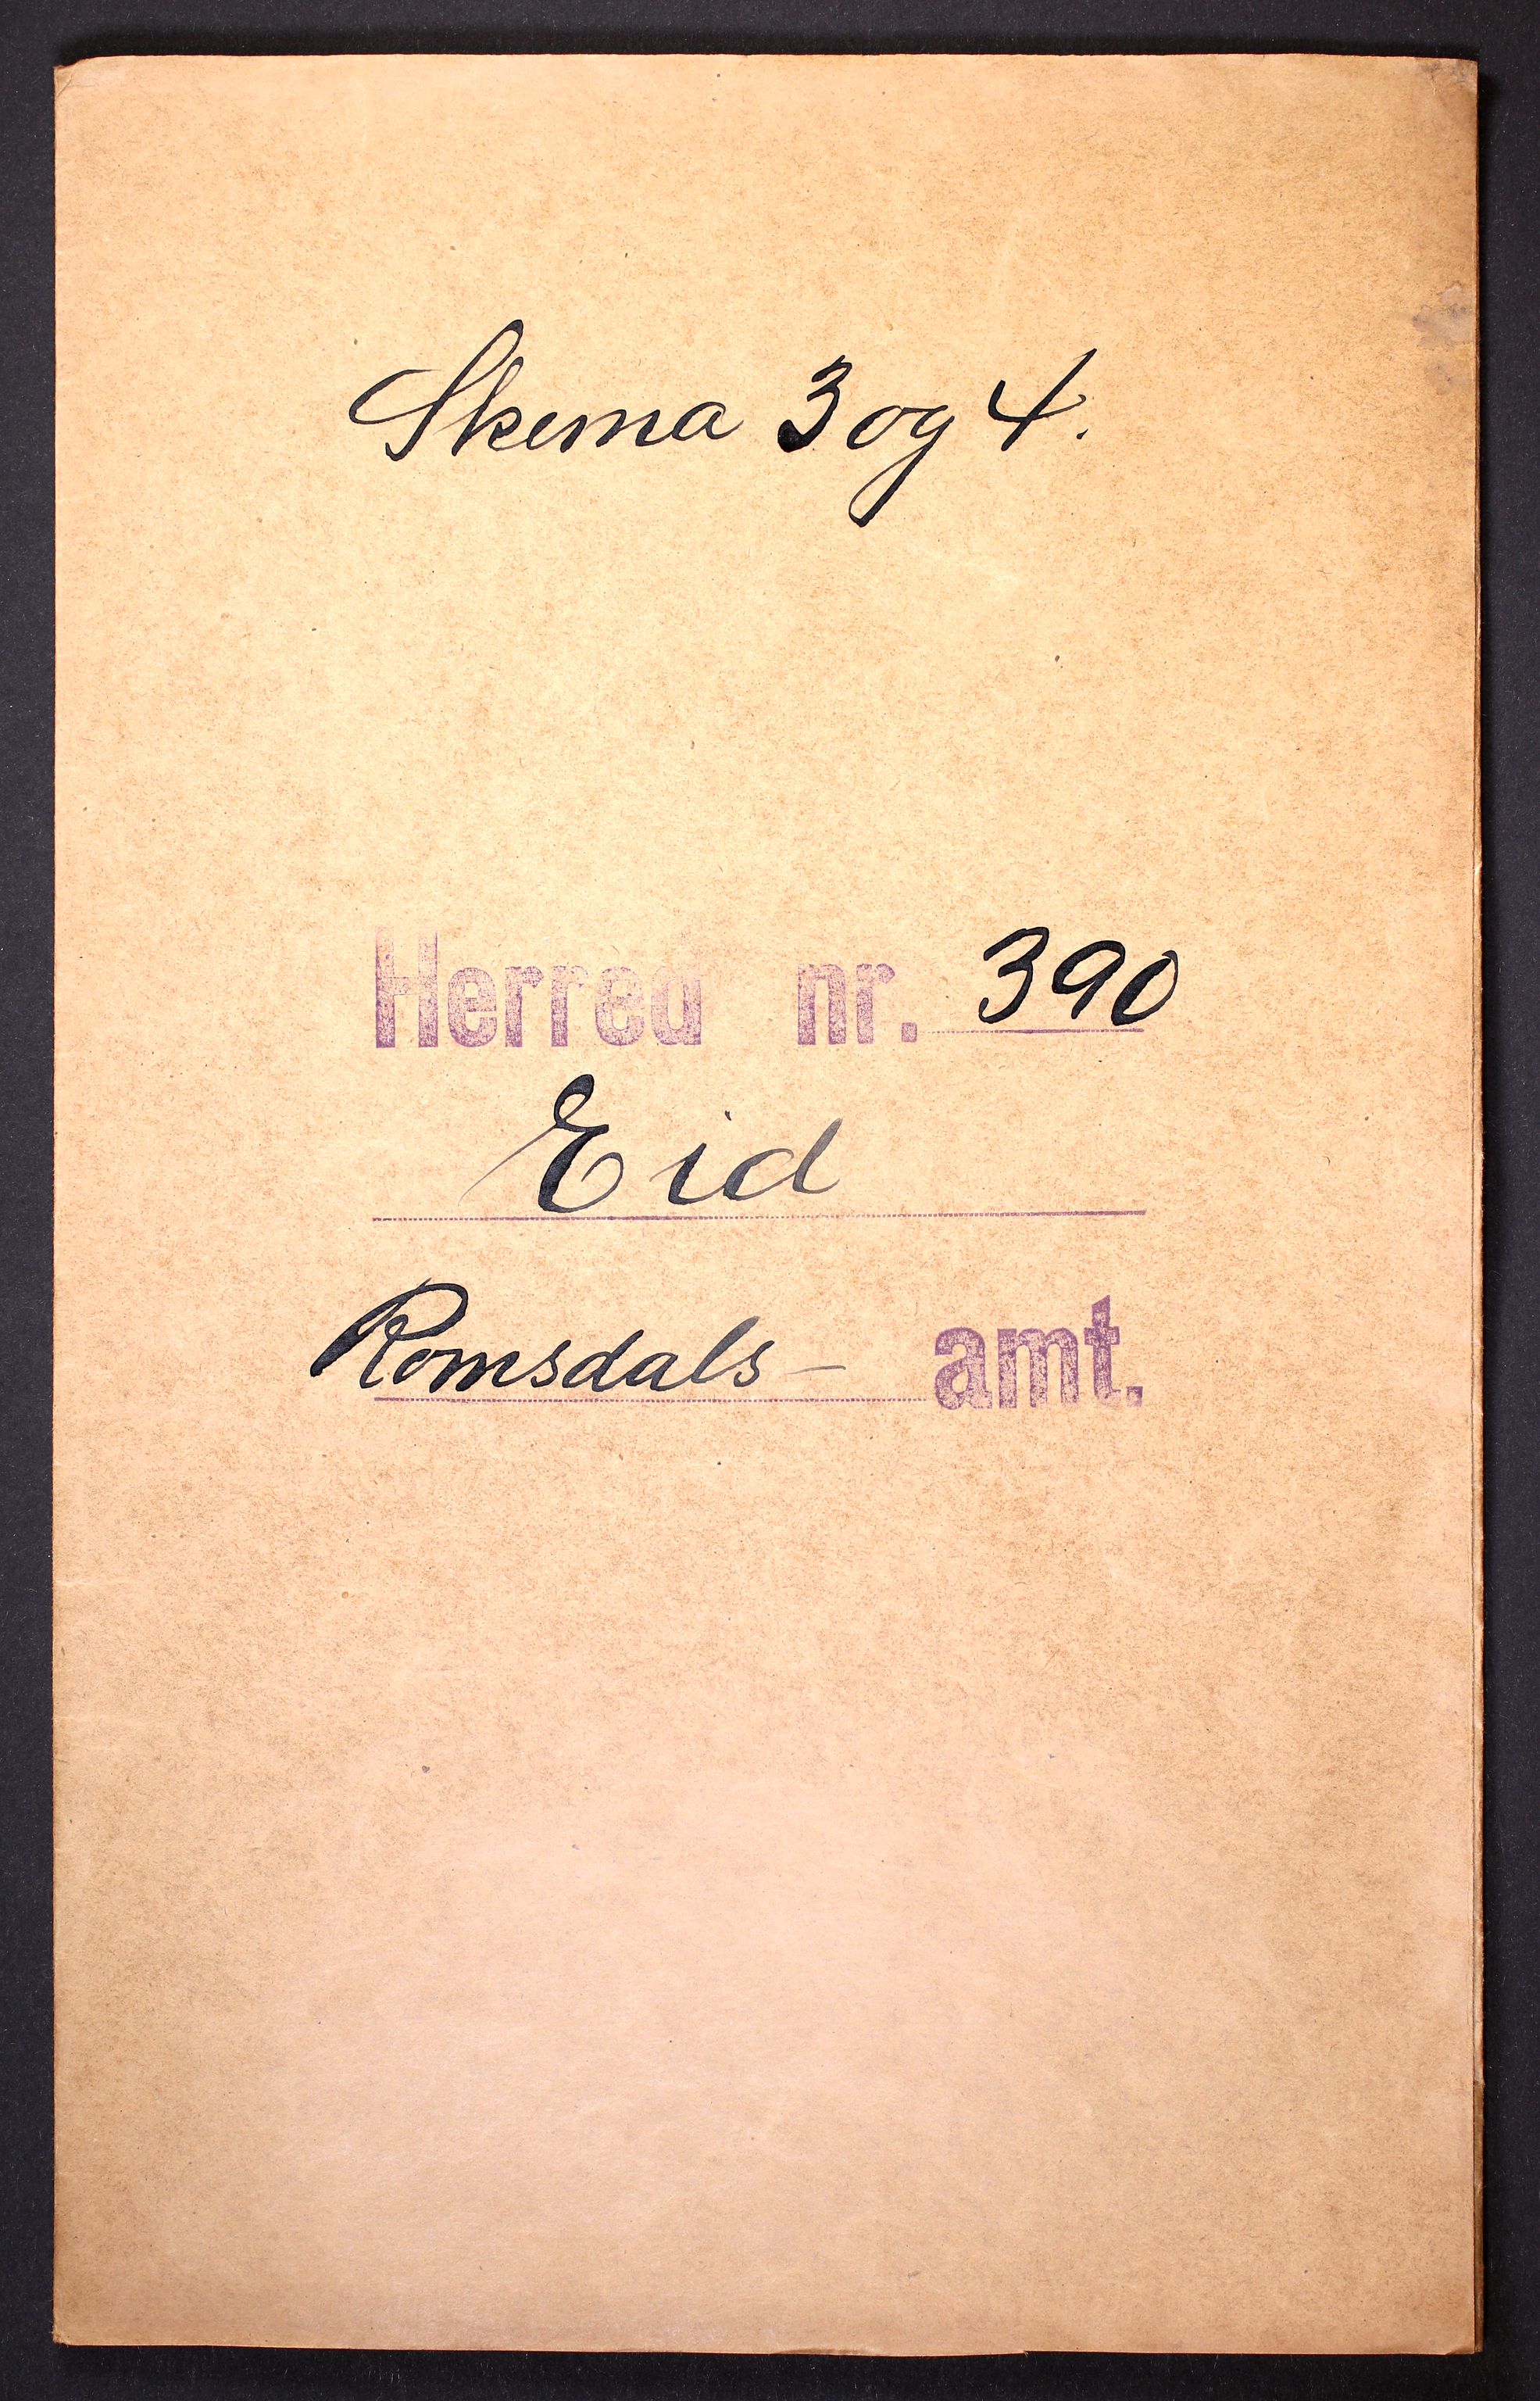 Skema 3 og 4.
Herred nr. 390
Eid
Romsdals- amt.